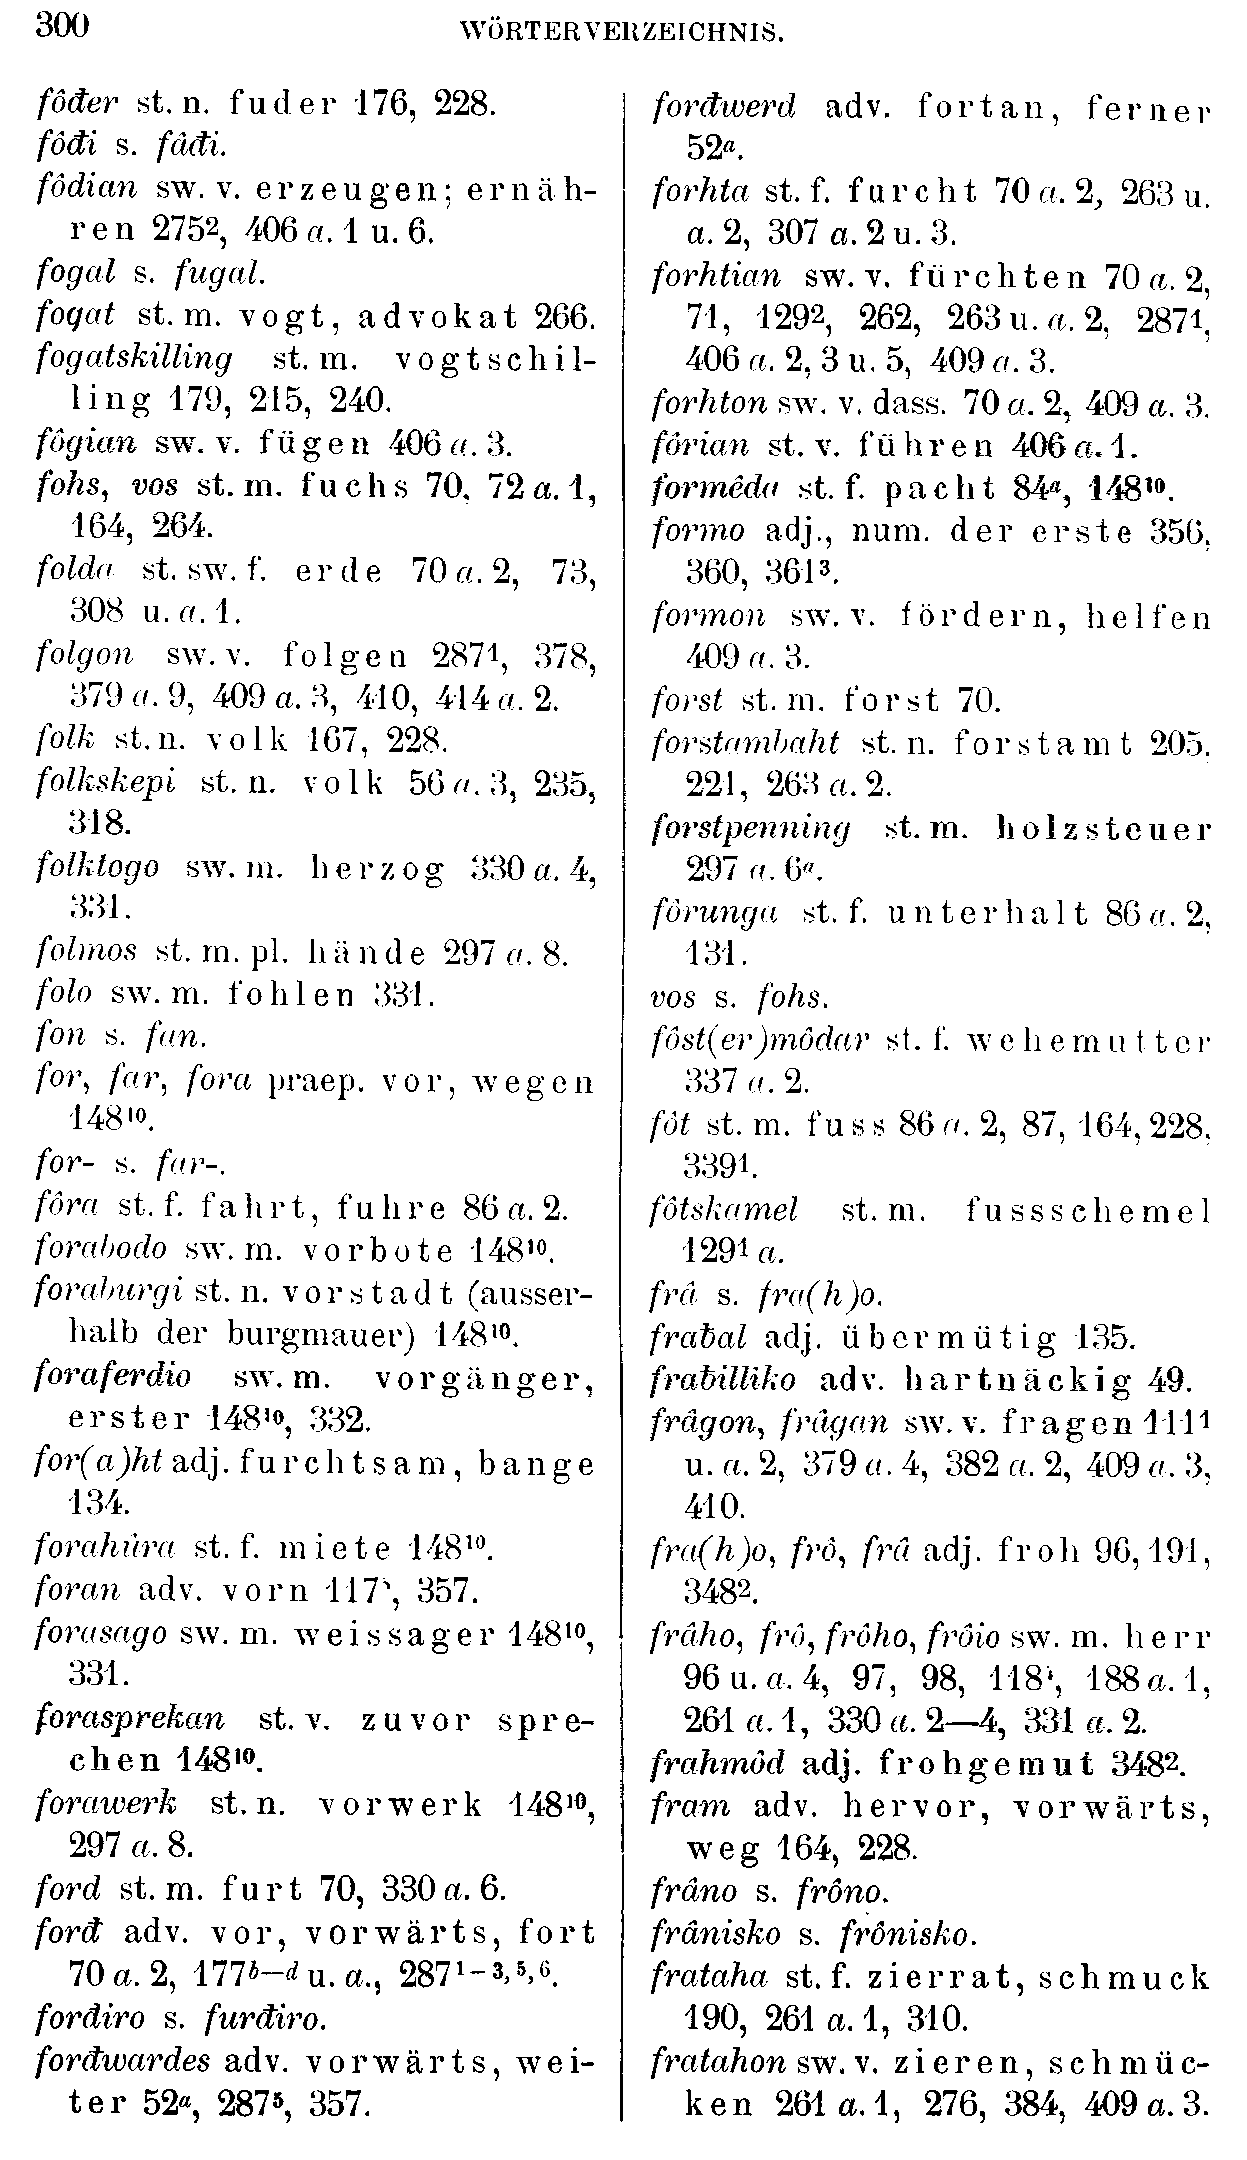 300
WÖRTERVERZEICHNIS.
fôđer st. n. fuder 176, 228.
fôđi s. fâđi.
fôdian sw. v. erzeugen; ernäh-
ren 275², 406 a. 1 u. 6.
fogal s. fugal.
fogat st. m. vogt, advokat 266.
fogatskilling st. m. vogtschil-
ling 179, 215, 240.
fôgian sw. v. fügen 406 a. 3.
fohs, vos st. m. fuchs 70, 72 a. 1,
164, 264.
folda st. sw. f. erde 70 a. 2, 73,
308 u. a. 1.
folgon sw. v. folgen 287¹, 378,
379 a. 9, 409 a. 3, 410, 414 a. 2.
folk st. n. volk 167, 228.
folkskepi st. n. volk 56 a. 3, 235,
318.
folktogo sw. m. herzog 330 a. 4,
331.
folmos st. m. pl. hände 297 a. 8.
folo sw. m. fohlen 331.
fon s. fan.
for, far, fora praep. vor, wegen
148¹⁰.
for- s. far-.
fôra st. f. fahrt, fuhre 86 a. 2.
forabodo sw. m. vorbote 148¹⁰.
foraburgi st. n. vorstadt (ausser-
halb der burgmauer) 148¹⁰.
foraferdio sw. m. vorgänger,
erster 148¹⁰, 332.
for(a)ht adj. furchtsam, bange
134.
forahûra st. f. miete 148¹⁰.
foran adv. vorn 117, 357.
forasago sw. m. weissager 148¹⁰,
331.
forasprekan st. v. zuvor spre-
chen 148¹⁰.
forawerk st. n. vorwerk 148¹⁰,
297 a. 8.
ford st. m. furt 70, 330 a. 6.
forđ adv. vor, vorwärts, fort
70 a. 2, 177ᵇ—ᵈ u. a., 287¹⁻³,⁵,⁶.
forđiro s. furđiro.
forđwardes adv. vorwärts, wei-
ter 52ᵃ, 287⁵, 357.
forđwerd adv. fortan, ferner
52ᵃ.
forhta st. f. furcht 70 a. 2, 263 u.
a. 2, 307 a. 2 u. 3.
forhtian sw. v. fürchten 70 a. 2,
71, 129², 262, 263 u. a. 2, 287¹,
406 a. 2, 3 u. 5, 409 a. 3.
forhton sw. v. dass. 70 a. 2, 409 a. 3.
fôrian st. v. führen 406 a. 1.
formêda st. f. pacht 84ᵃ, 148¹⁰.
formo adj., num. der erste 356,
360, 361³.
formon sw. v. fördern, helfen
409 a. 3.
forst st. m. forst 70.
forstambaht st. n. forstamt 205,
221, 263 a. 2.
forstpenning st. m. holzsteuer
297 a. 6ᵃ.
fôrunga st. f. unterhalt 86 a. 2,
131.
vos s. fohs.
fôst(er)môdar st. f. wehemutter
337 a. 2.
fôt st. m. fuss 86 a. 2, 87, 164, 228,
339¹.
fôtskamel st. m. fussschemel
129¹ a.
frâ s. fra(h)o.
fraƀal adj. übermütig 135.
fraƀilliko adv. hartnäckig 49.
frâgon, frâgan sw. v. fragen 111¹
u. a. 2, 379 a. 4, 382 a. 2, 409 a. 3,
410.
fra(h)o, frô, frâ adj. froh 96, 191,
348².
frâho, frô, frôho, frôio sw. m. herr
96 u. a. 4, 97, 98, 118, 188 a. 1,
261 a. 1, 330 a. 2—4, 331 a. 2.
frahmôd adj. frohgemut 348².
fram adv. hervor, vorwärts,
weg 164, 228.
frâno s. frôno.
frânisko s. frônisko.
frataha st. f. zierrat, schmuck
190, 261 a. 1, 310.
fratahon sw. v. zieren, schmüc-
ken 261 a. 1, 276, 384, 409 a. 3.